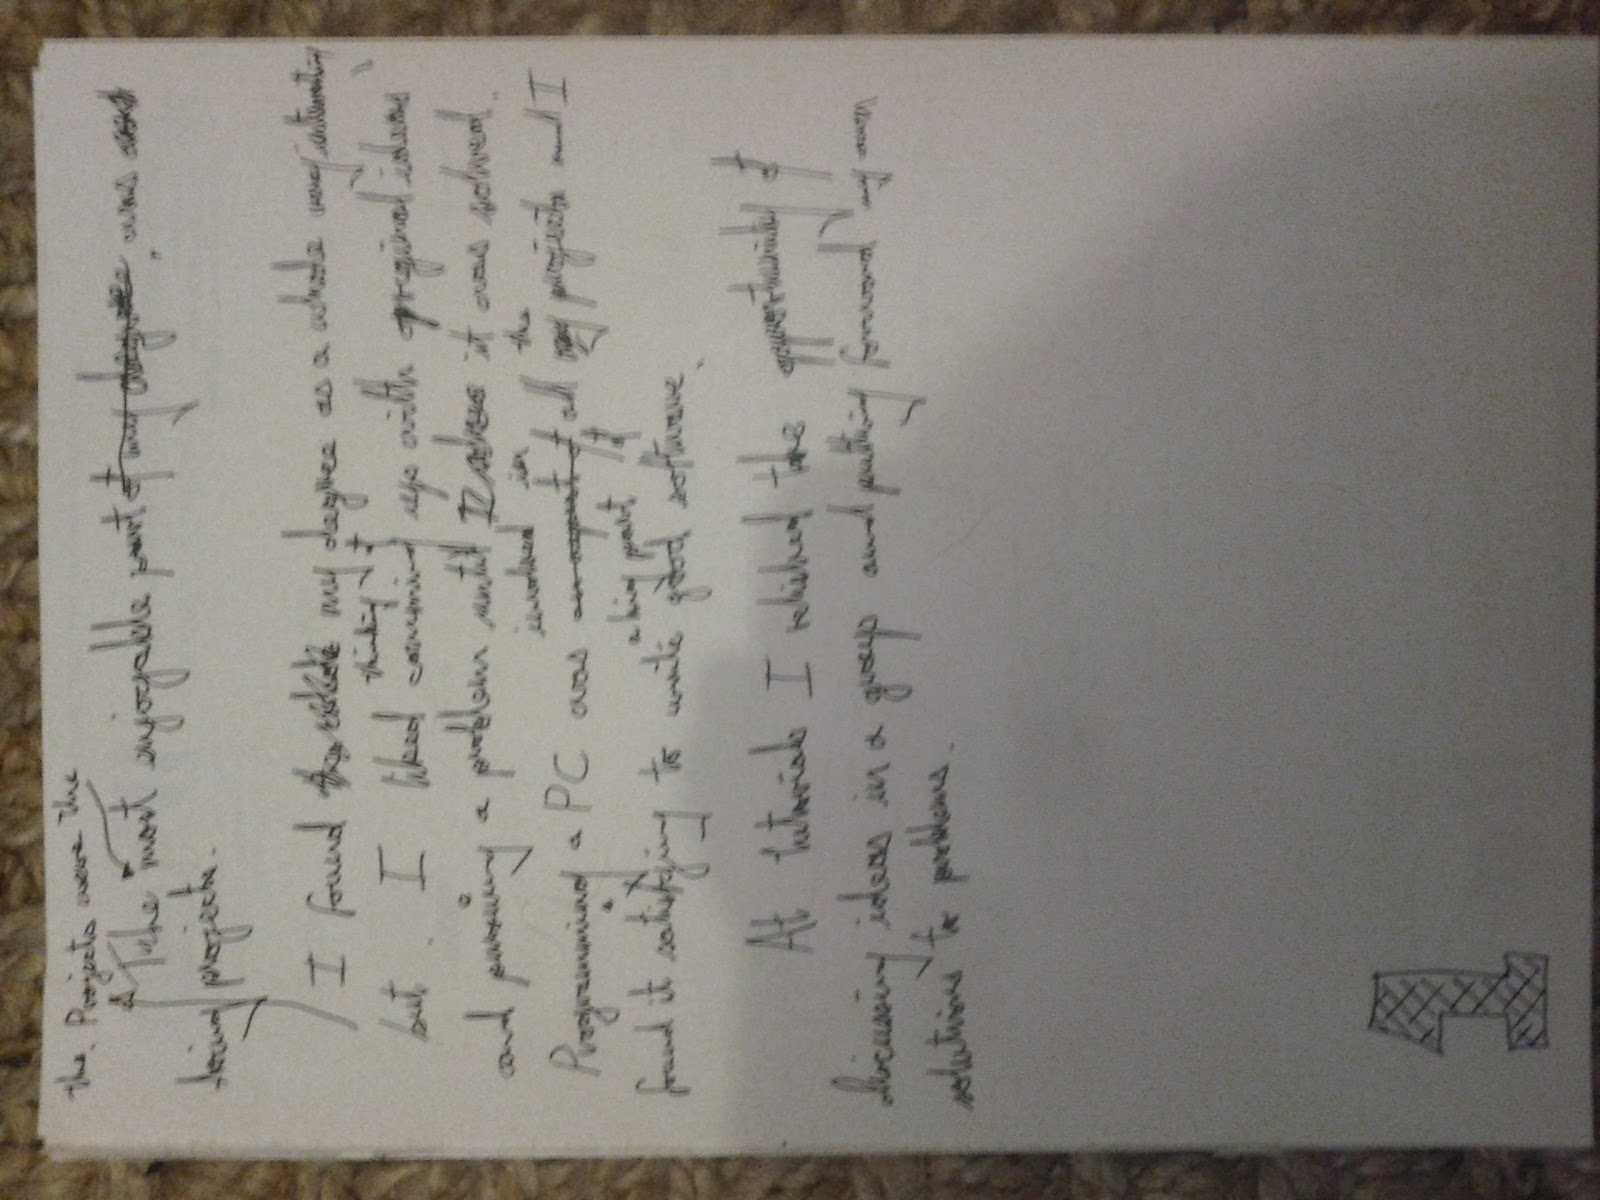 the. Projects were the
The most enjoyable part of my degree was
doing projects.
I found my degree as a whole very interesting
thinking of
but. I liked coming up with original ideas
and pursuing a problem until it was solved.
involved in the
Programming a PC was an aspect of all my projects and I
a big part of
found it satisfying to write good software.
At tutorials I relished the opportunity of
discussing ideas in a group and putting forward my own
solutions to problems.
1